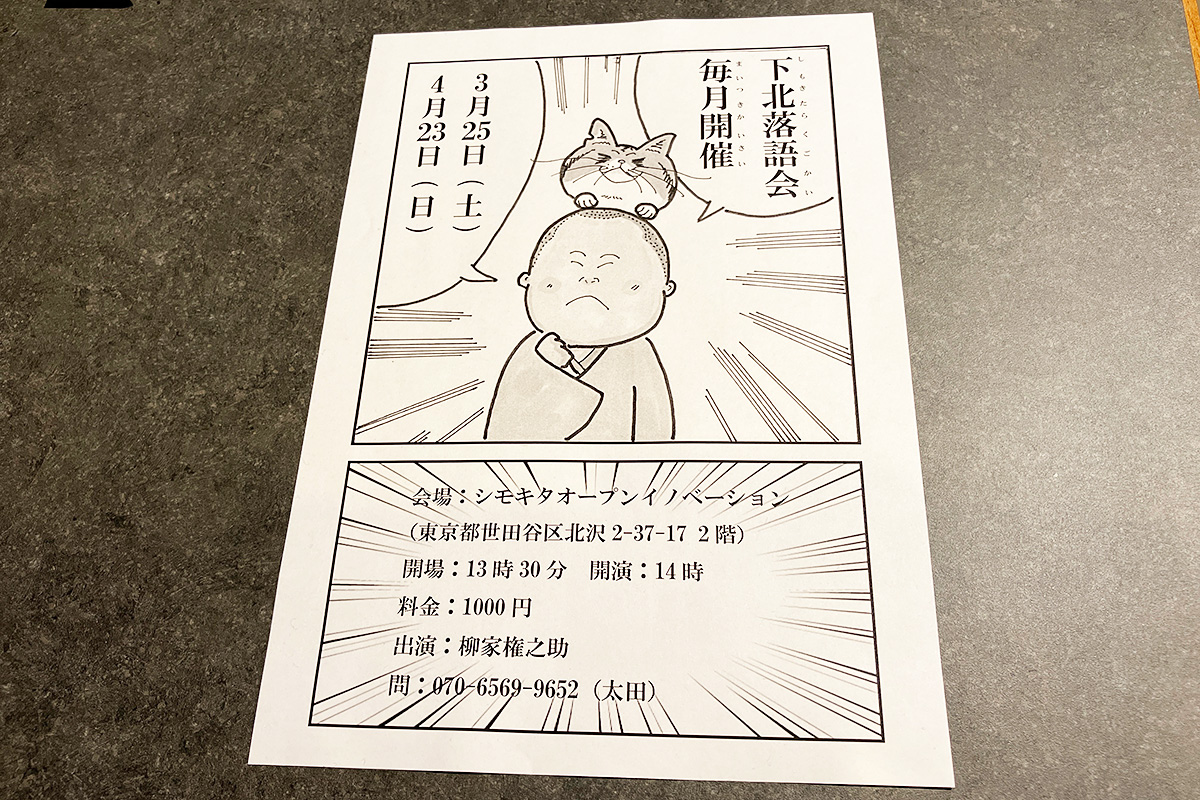 下北落語会
しもきたらくごかい
毎月開催
まいつきかいさい
3月25日（土）
4月23日（日）
会場：シモキタオープンイノベーション
（東京都世田谷区北沢 2-37-17 2 階）
開場：13 時 30 分　開演：14 時
料金：1000 円
出演：柳家権之助
問：070-6569-9652（太田）